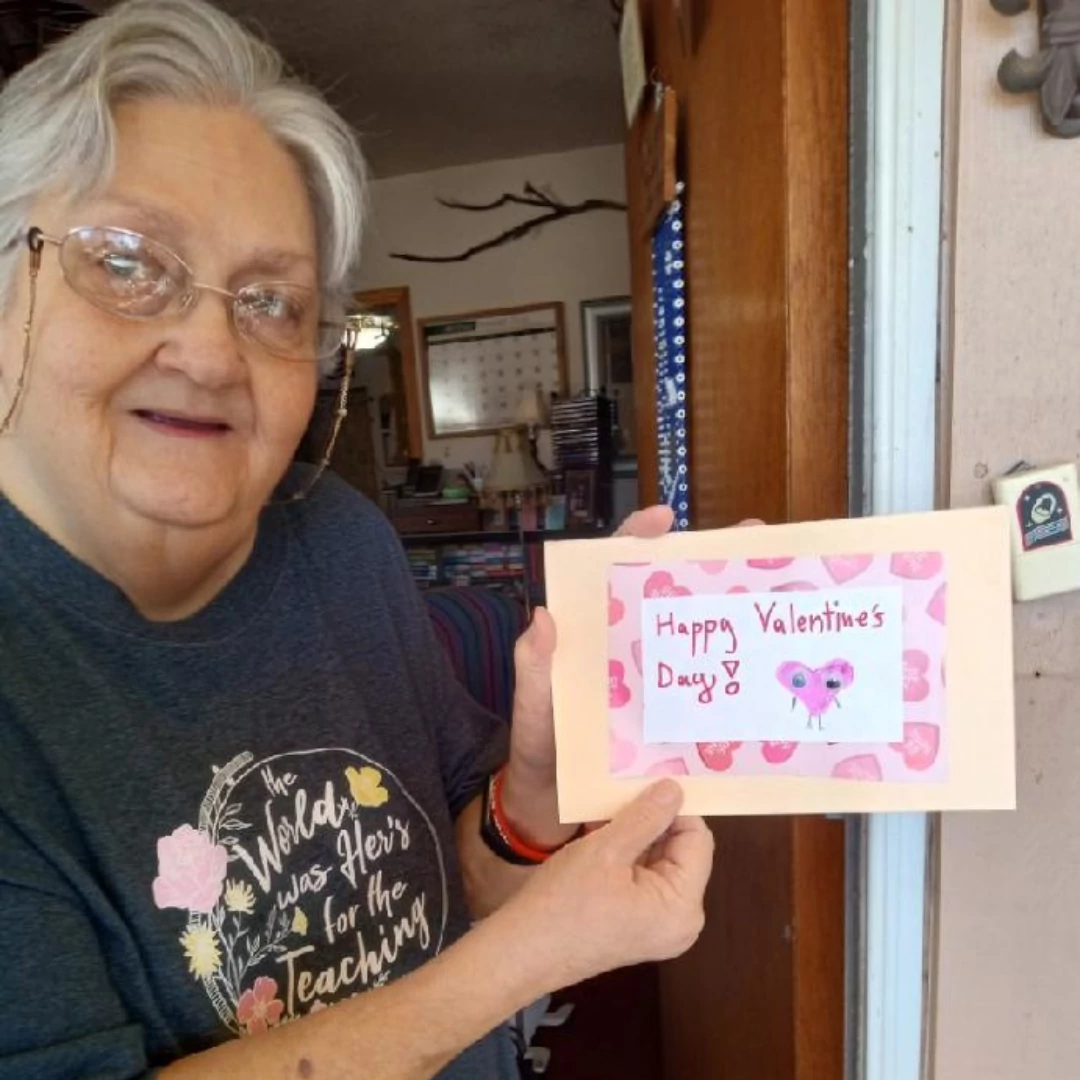 Happy Valentine's
Day!
the
World
was Her's
for the
Teaching